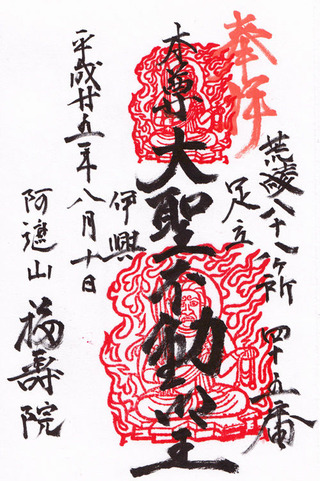 奉拝
荒綾八十八ヶ所 四十五番
足立
伊興
本尊 大聖不動明王
平成廿五年八月十日
阿遮山 福壽院